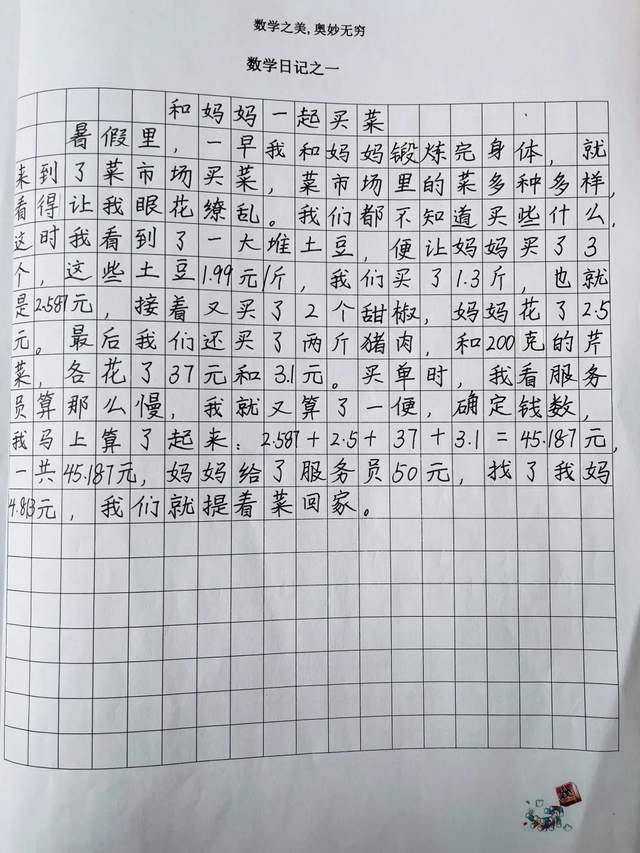 数学之美,奥妙无穷
数学日记之一
和妈妈一起买菜
暑假里，一早我和妈妈锻炼完身体，就
来到了菜市场买菜，菜市场里的菜多种多样，
看得让我眼花缭乱。我们都不知道买些什么，
这时我看到了一大堆土豆，便让妈妈买了3
个，这些土豆1.99元/斤，我们买了1.3斤，也就
是2.587元，接着又买了2个甜椒，妈妈花了2.5
元。最后我们还买了两斤猪肉，和200克的芹
菜，各花了37元和3.1元。买单时，我看服务
员算那么慢，我就又算了一便，确定钱数，
我马上算了起来：2.587+2.5+37+3.1=45.187元，
一共45.187元，妈妈给了服务员50元，找了我妈
4.813元，我们就提着菜回家。